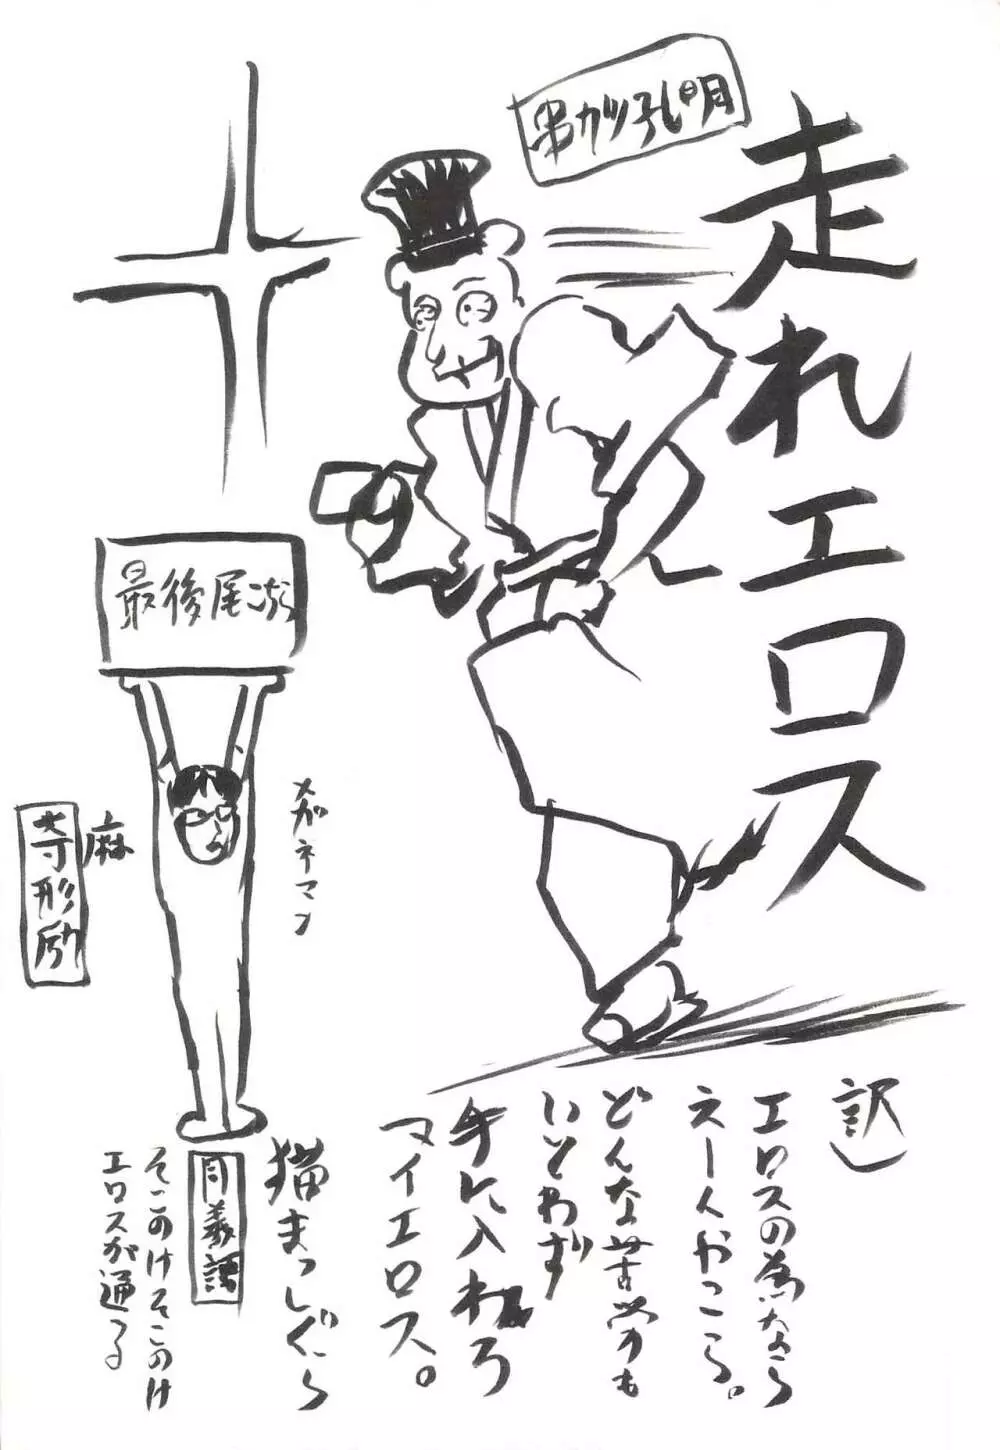 走れエロス
串カツ孔明
最後尾
メガネマン
麻
寺形励
訳
エロスの為なら
えーんやこら。
どんな苦労も
いとわず
手に入れろ
マイエロス。
猫まっしぐら
同義語
そこのけそこのけ
エロスが通る